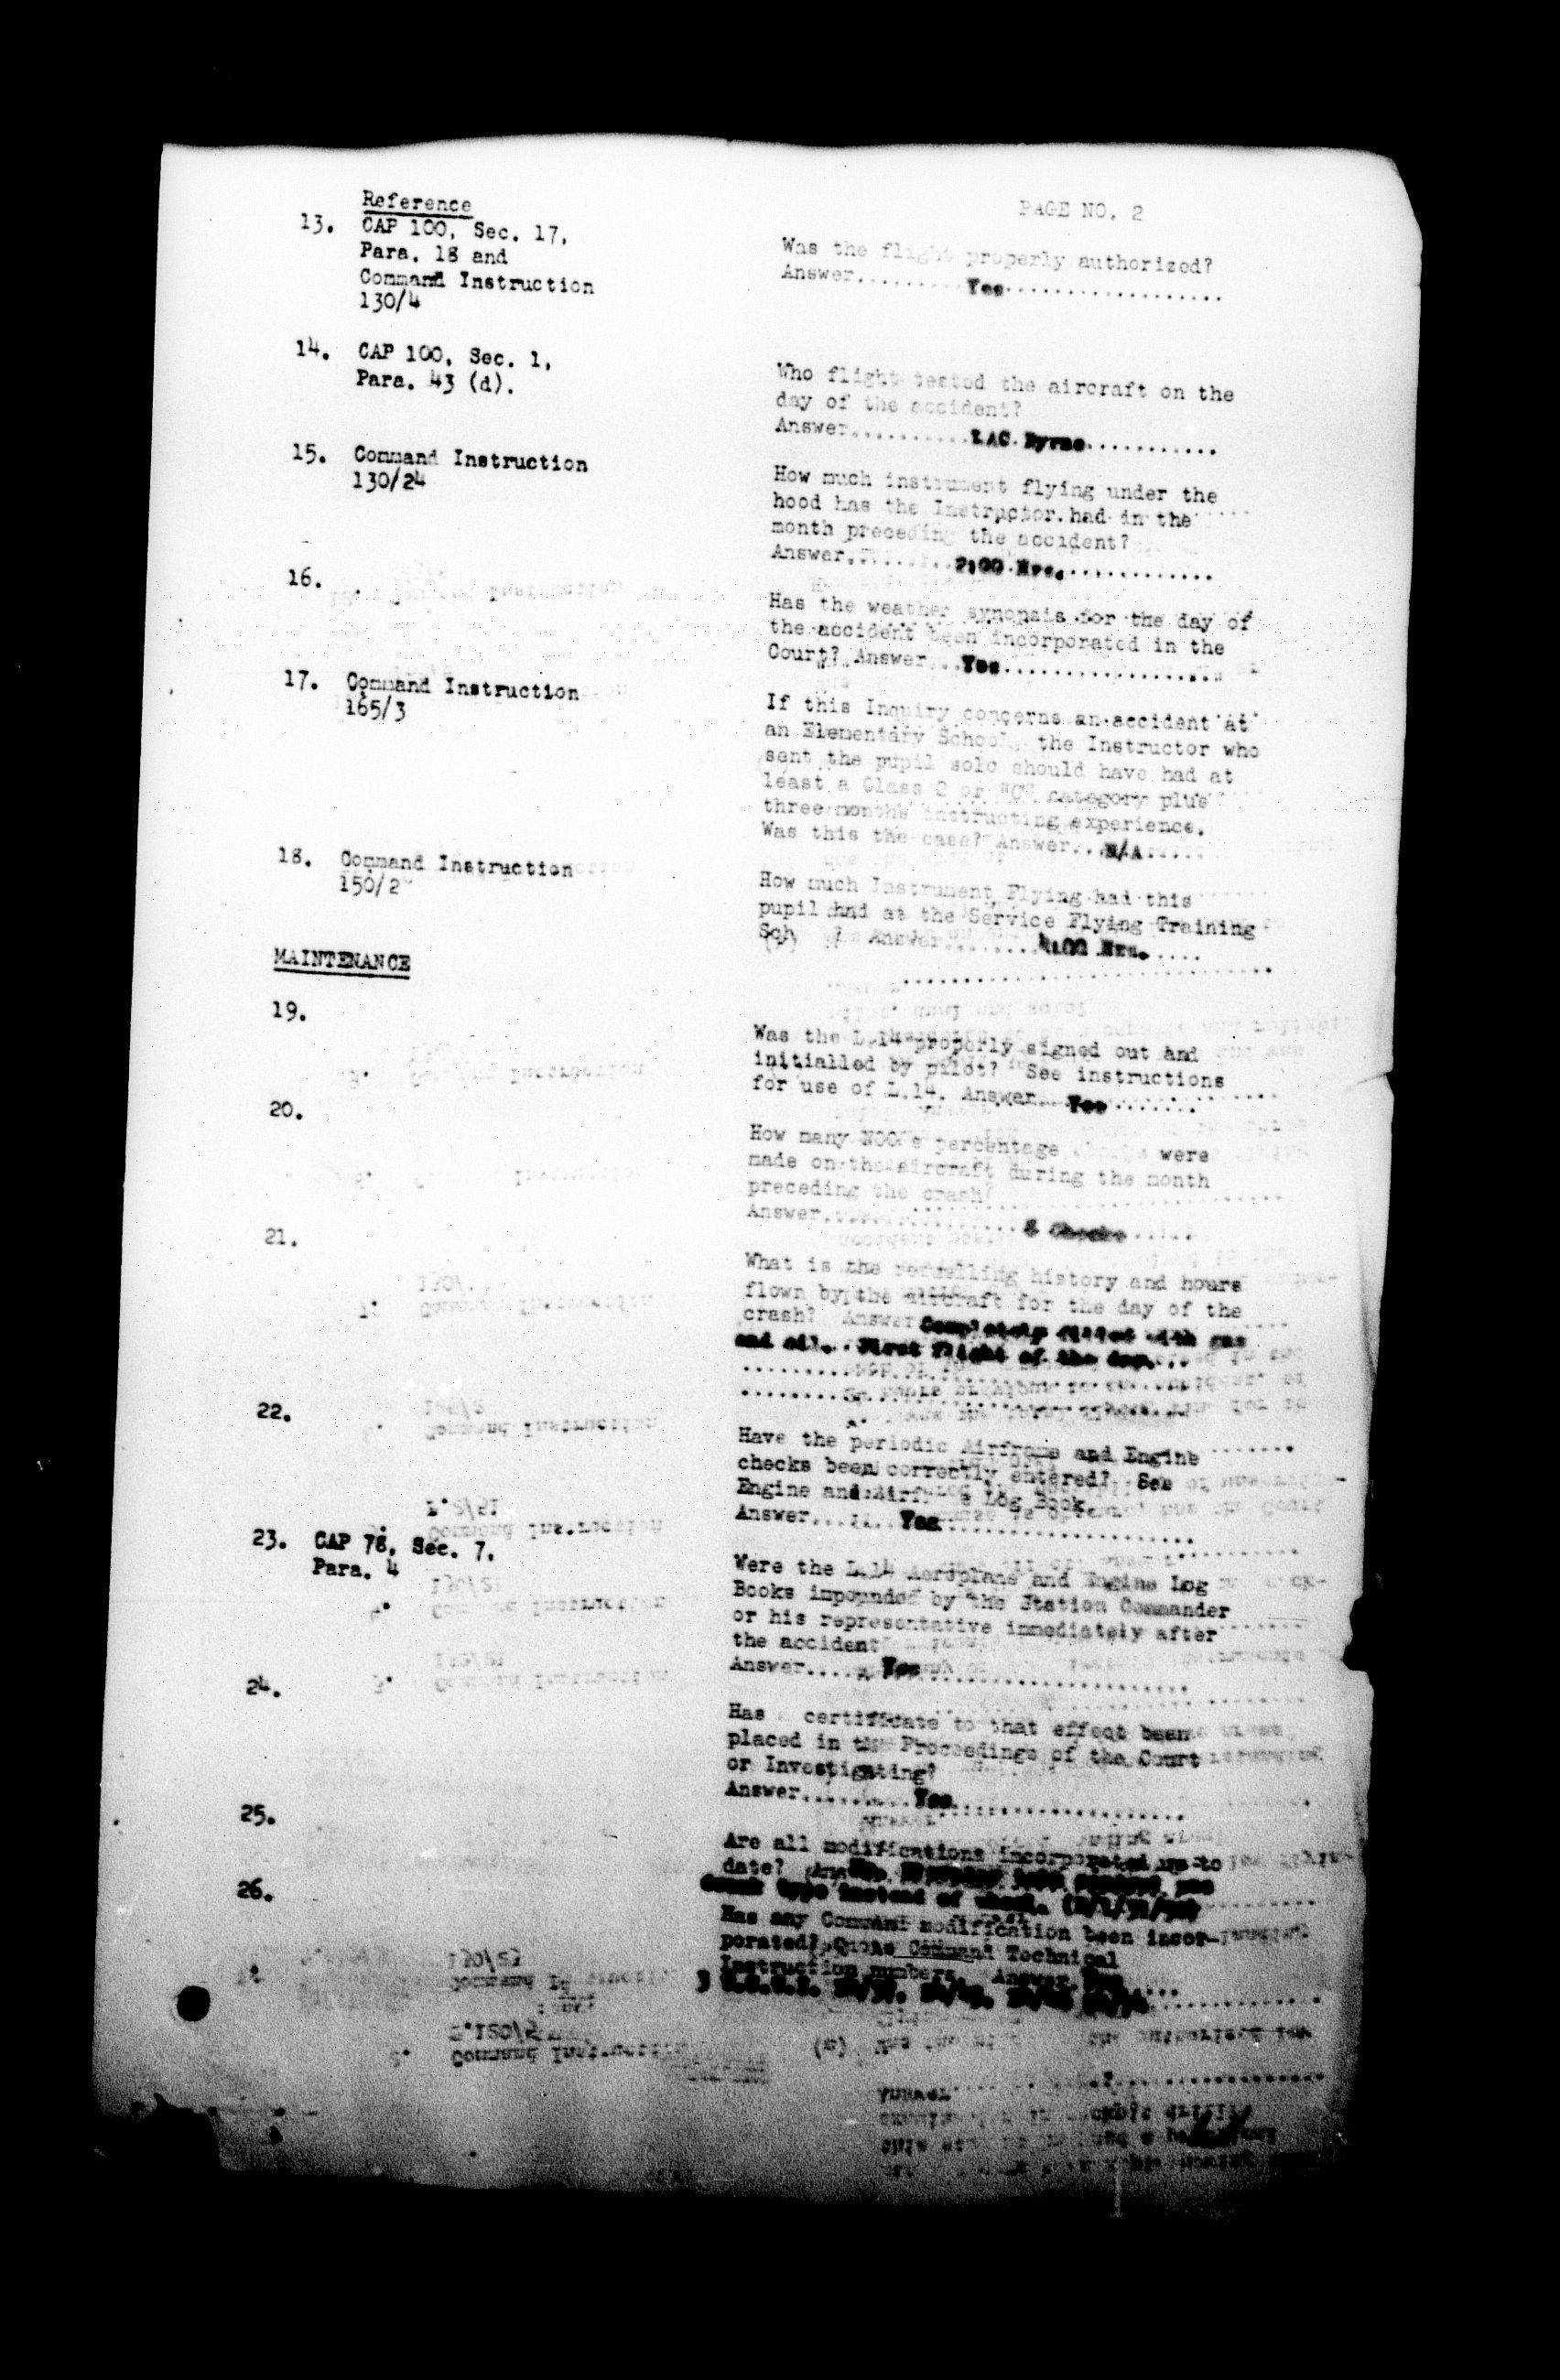 Reference
PAGE NO. 2
13. CAP 100, Sec. 17,
Para. 18 and
Command Instruction
130/4
Was the flight properly authorized?
Answer.........Yes..................
14. CAP 100, Sec. 1,
Para. 43 (d).
Who flight tested the aircraft on the
day of the accident?
Answer..........LAC. Byrne...........
15. Command Instruction
130/24
How much instrument flying under the
hood has the Instructor had in the
month preceding the accident?
Answer.........2:00 Hrs.............
16.
Has the weather synopsis for the day of
the accident been incorporated in the
Court? Answer...Yes..................
17. Command Instruction
165/3
If this Inquiry concerns an accident at
an Elementary School, the Instructor who
sent the pupil solo should have had at
least a Class 2 or "C" category plus
three months instructing experience.
Was this the case? Answer...N/A.....
18. Command Instruction
150/2
How much Instrument Flying had this
pupil had at the Service Flying Training
Sch ? Answer........4:00 Hrs.....
MAINTENANCE
19.
Was the L.14 properly signed out and
initialled by pilot? See instructions
for use of L.14. Answer....Yes.......
20.
How many NCO's percentage were
made on the aircraft during the month
preceding the crash?
Answer.................. Checks.....
21.
What is the refuelling history and hours
flown by the aircraft for the day of the
crash? Answer Completely filled with gas
and oil. First flight of the day...
22.
Have the periodic Airframe and Engine
checks been correctly entered? See
Engine and Airframe Log Book.
Answer.......Yes....................
23. CAP 78, Sec. 7,
Para. 4
Were the L.14 Aeroplane and Engine Log
Books impounded by the Station Commander
or his representative immediately after
the accident
Answer.......Yes......................
24.
Has certificate to that effect been
placed in the Proceedings of the Court
or Investigating?
Answer..........Yes....................
25.
Are all modifications incorporated up to
date?
type instead of
26.
Has any Command modification been incor-
porated? Quote Command Technical
Instruction numbers. Answer